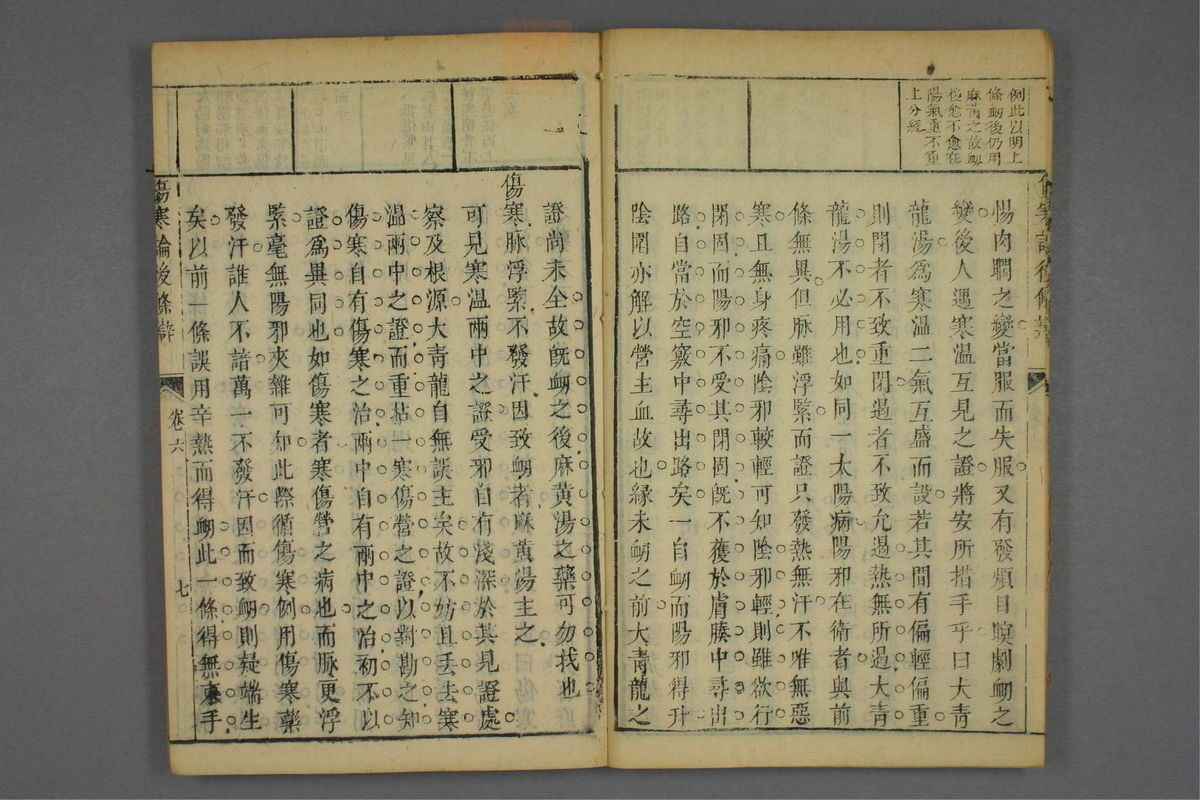 例此以明上
條衂後仍用
麻黃之故衂
後愈不愈在
陽氣重不重
上分經
惕肉瞤之變當服而失服又有發煩目瞑劇衂之
變後人遇寒温互見之證將安所措手乎曰大青
龍湯為寒温二氣互盛而設若其間有偏輕偏重
則閉者不致重閉過者不致允過熱無所過大青
龍湯不必用也如同一太陽病陽邪在衛者與前
條無異但脈雖浮緊而證只發熱無汗不唯無惡
寒且無身疼痛陰邪較輕可知陰邪輕則雖欲行
閉固而陽邪不受其閉固旣不獲於膚腠中尋出
路自當於空竅中尋出路矣一自衂而陽邪得升
陰閉亦解以營主血故也緣未衂之前大青龍之
證尚未全故旣衂之後麻黃湯之藥可勿找也
傷寒脈浮緊不發汗因致衂者麻黃湯主之
可見寒温兩中之證受邪自有淺深於其見證處
察及根源大青龍自無誤主矣故不妨且丢去寒
温兩中之證而重拈一寒傷營之證以對勘之知
傷寒自有傷寒之治兩中自有兩中之治初不以
證為異同也如傷寒者寒傷營之病也而脈更浮
緊毫無陽邪夾雜可知此際循傷寒例用傷寒藥
發汗誰人不諳萬一不發汗因而致衂則疑端生
矣以前一條誤用辛熱而得衂此一條得無束手
傷寒論後條辯
卷六
七